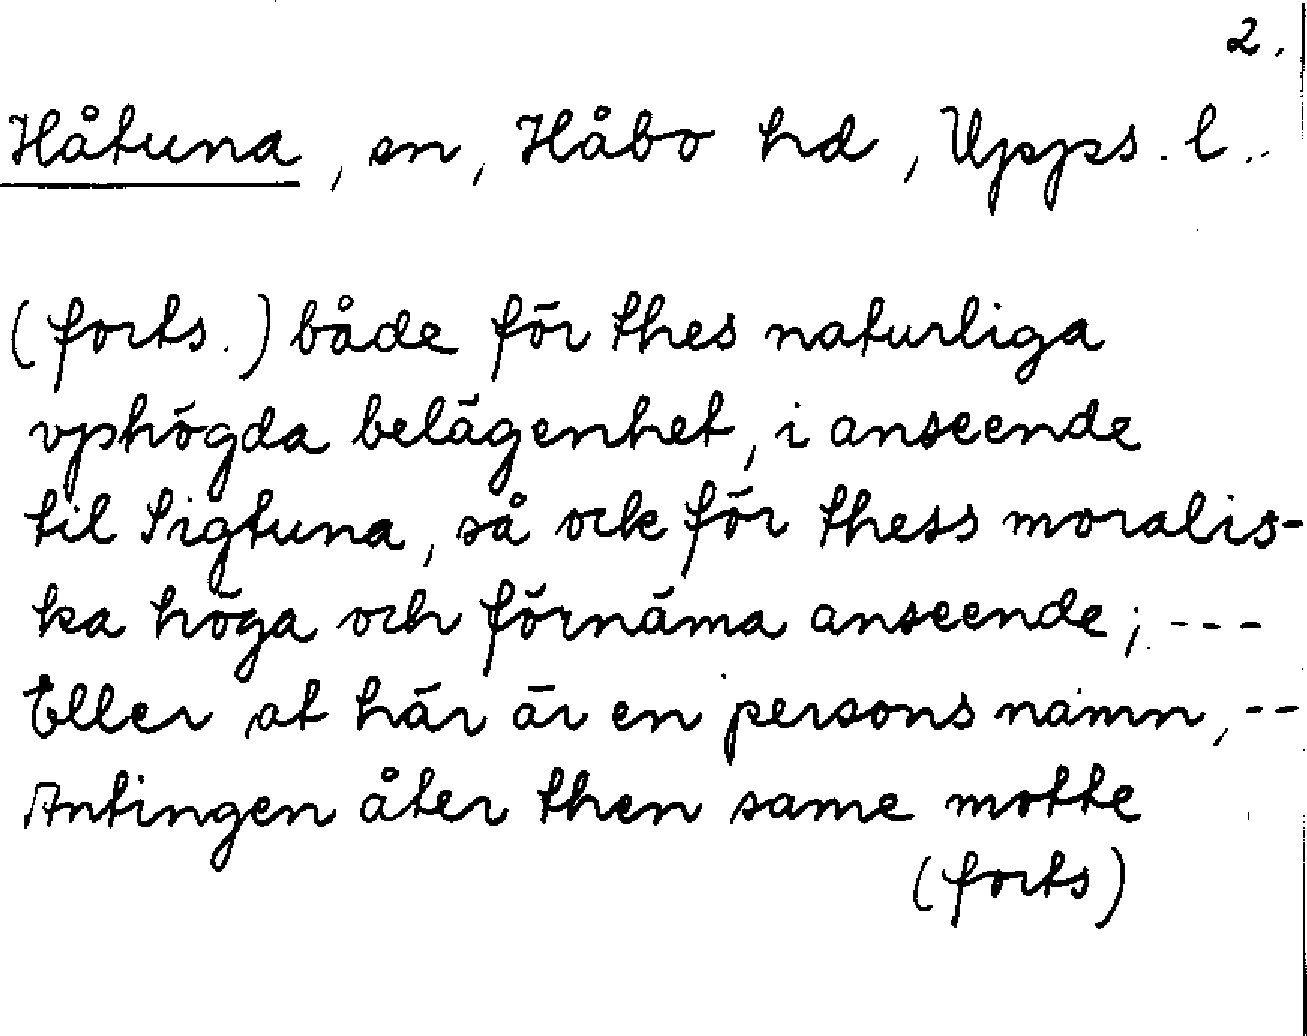 2.
Håtuna, sn, Håbo hd, Upps. l.
(forts.) både för thes naturliga
vphögda belägenhet, i anseende
til Sigtuna, så ock för thess moralis-
ka höga och förnäma anseende; ---
Eller at här är en persons namn, --
Antingen åter then same motte
(forts)